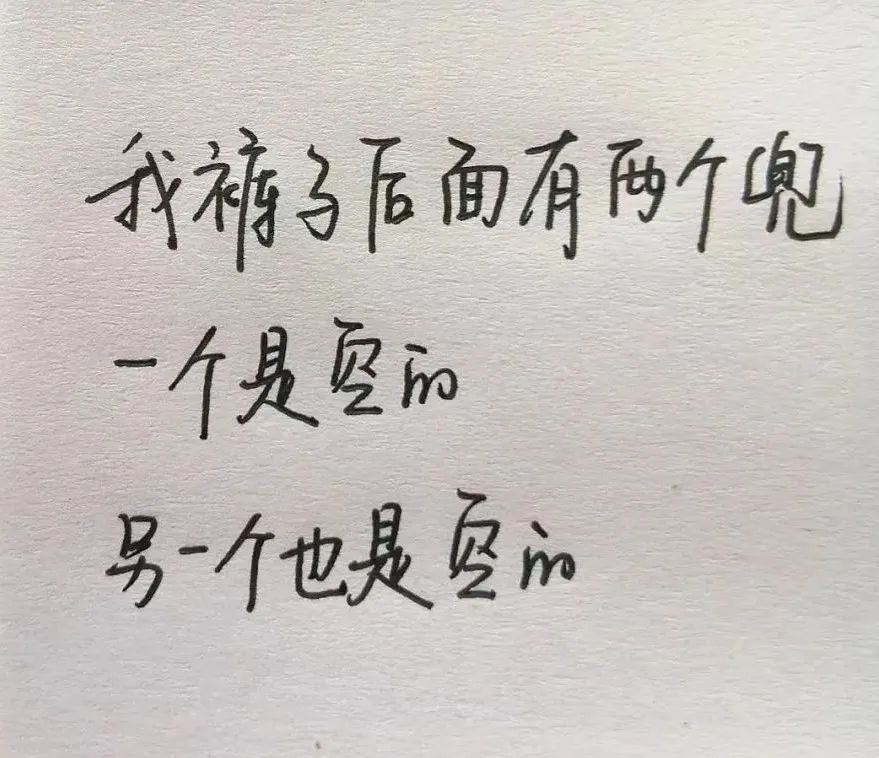 我裤子后面有两个兜
一个是空的
另一个也是空的